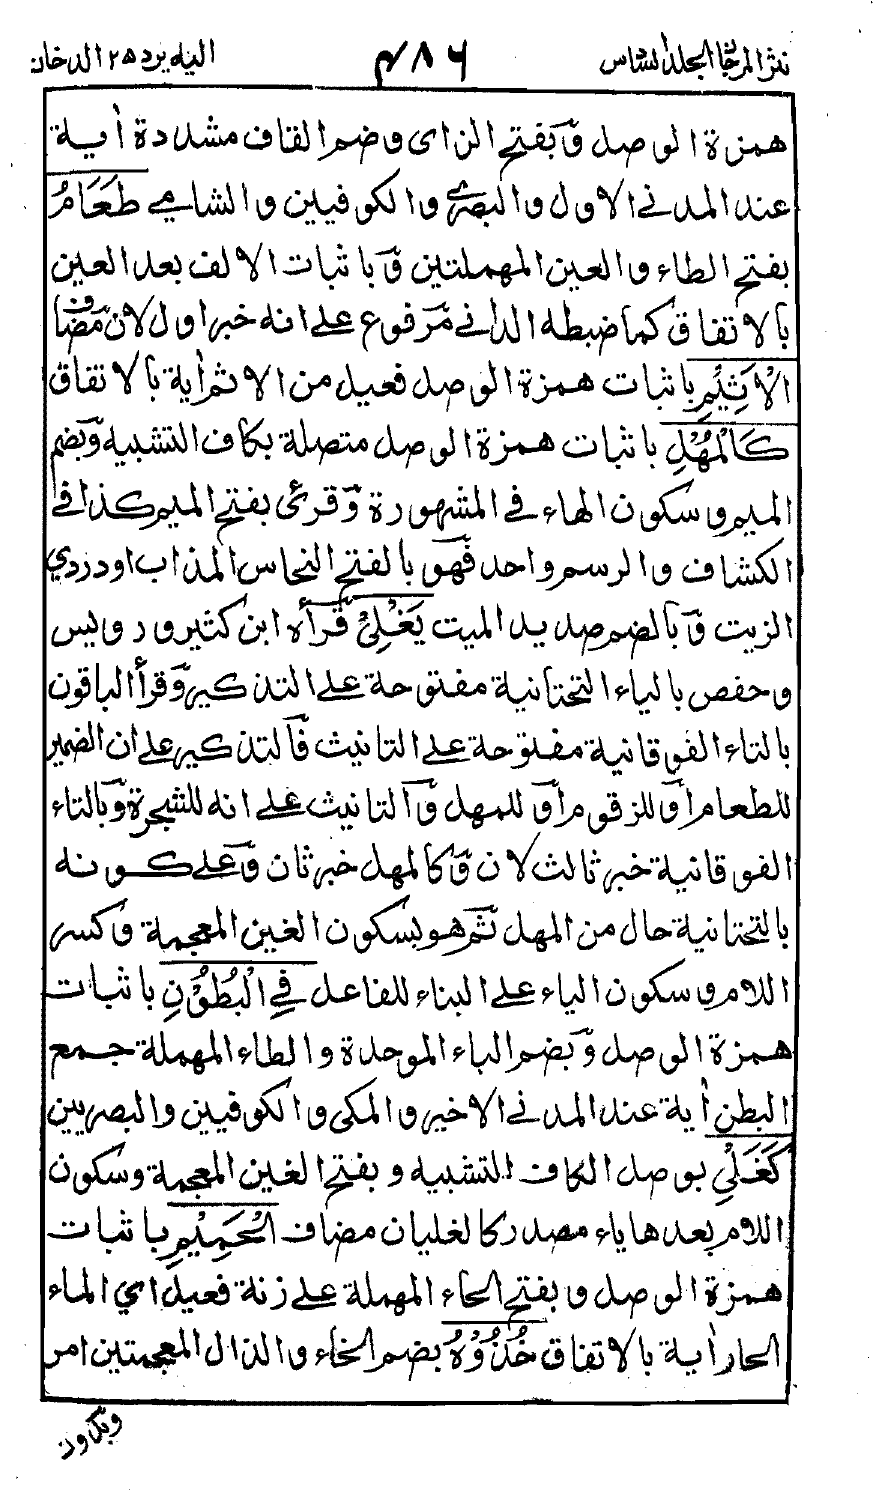 نثر المرجان المجلد السادس ۴۸۶ اليه يرد ۲۵ الدخان
همزة الوصل وبفتح الزاى وضم القاف مشددة اٰية
عند المدنى الاول والبصرى والكوفيين والشامى طَعَامُ
بفتح الطاء والعين المهملتين وباثبات الالف بعد العين
بالاتفاق كما ضبطه الدانى مرفوع على انه خبر اول لان مضاف
الْاَثِيْمِ باثبات همزة الوصل فعيل من الاثم اٰية بالاتفاق
كَالْمُهْلِ باثبات همزة الوصل متصلة بكاف التشبيه وبضم
الميم وسكون الهاء فى المشهورة وقرئ بفتح الميم كذا فى
الكشاف والرسم واحد فهو بالفتح النحاس المذاب او دردي
الزيت وبالضم صديد الميت يَغْلِىْ قرأه ابن كثير ورويس
وحفص بالياء التحتانية مفتوحة على التذكير وقرأ الباقون
بالتاء الفوقانية مفتوحة على التانيث فالتذكير على ان الضمير
للطعام او للزقوم او للمهل والتانيث على انه للشجرة وبالتاء
الفوقانية خبر ثالث لان وكالمهل خبر ثان وعلى كونه
بالتحتانية حال من المهل ثم هو بسكون الغين المعجمة وكسر
اللام وسكون الياء على البناء للفاعل فِي الْبُطُوْنِ باثبات
همزة الوصل وبضم الباء الموحدة والطاء المهملة جمع
البطن اٰية عند المدنى الاخير والمكى والكوفيين والبصريين
كَغَلْيِ بوصل الكاف للتشبيه وبفتح الغين المعجمة وسكون
اللام بعدها ياء مصدر كالغليان مضاف الْحَمِيْمِ باثبات
همزة الوصل وبفتح الحاء المهملة على زنة فعيل اي الماء
الحار اٰية بالاتفاق خُذُوْهُ بضم الخاء والذال المعجمتين امر